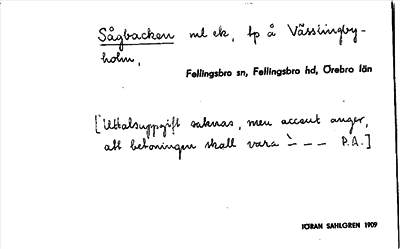 Sågbacken ml ek, tp å Vässlingby-
holm,
Fellingsbro sn, Fellingsbro hd, Örebro län
[Uttalsuppgift saknas, men accent anger,
att betoningen skall vara ` – – – P.A.]
JÖRAN SAHLGREN 1909